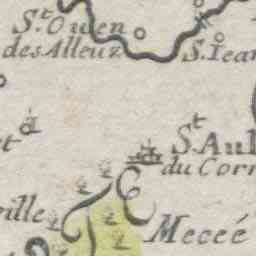 St. Ouen
des Alleuz
S. Iean
St. Aul
du Corn
et
ville
Meceé